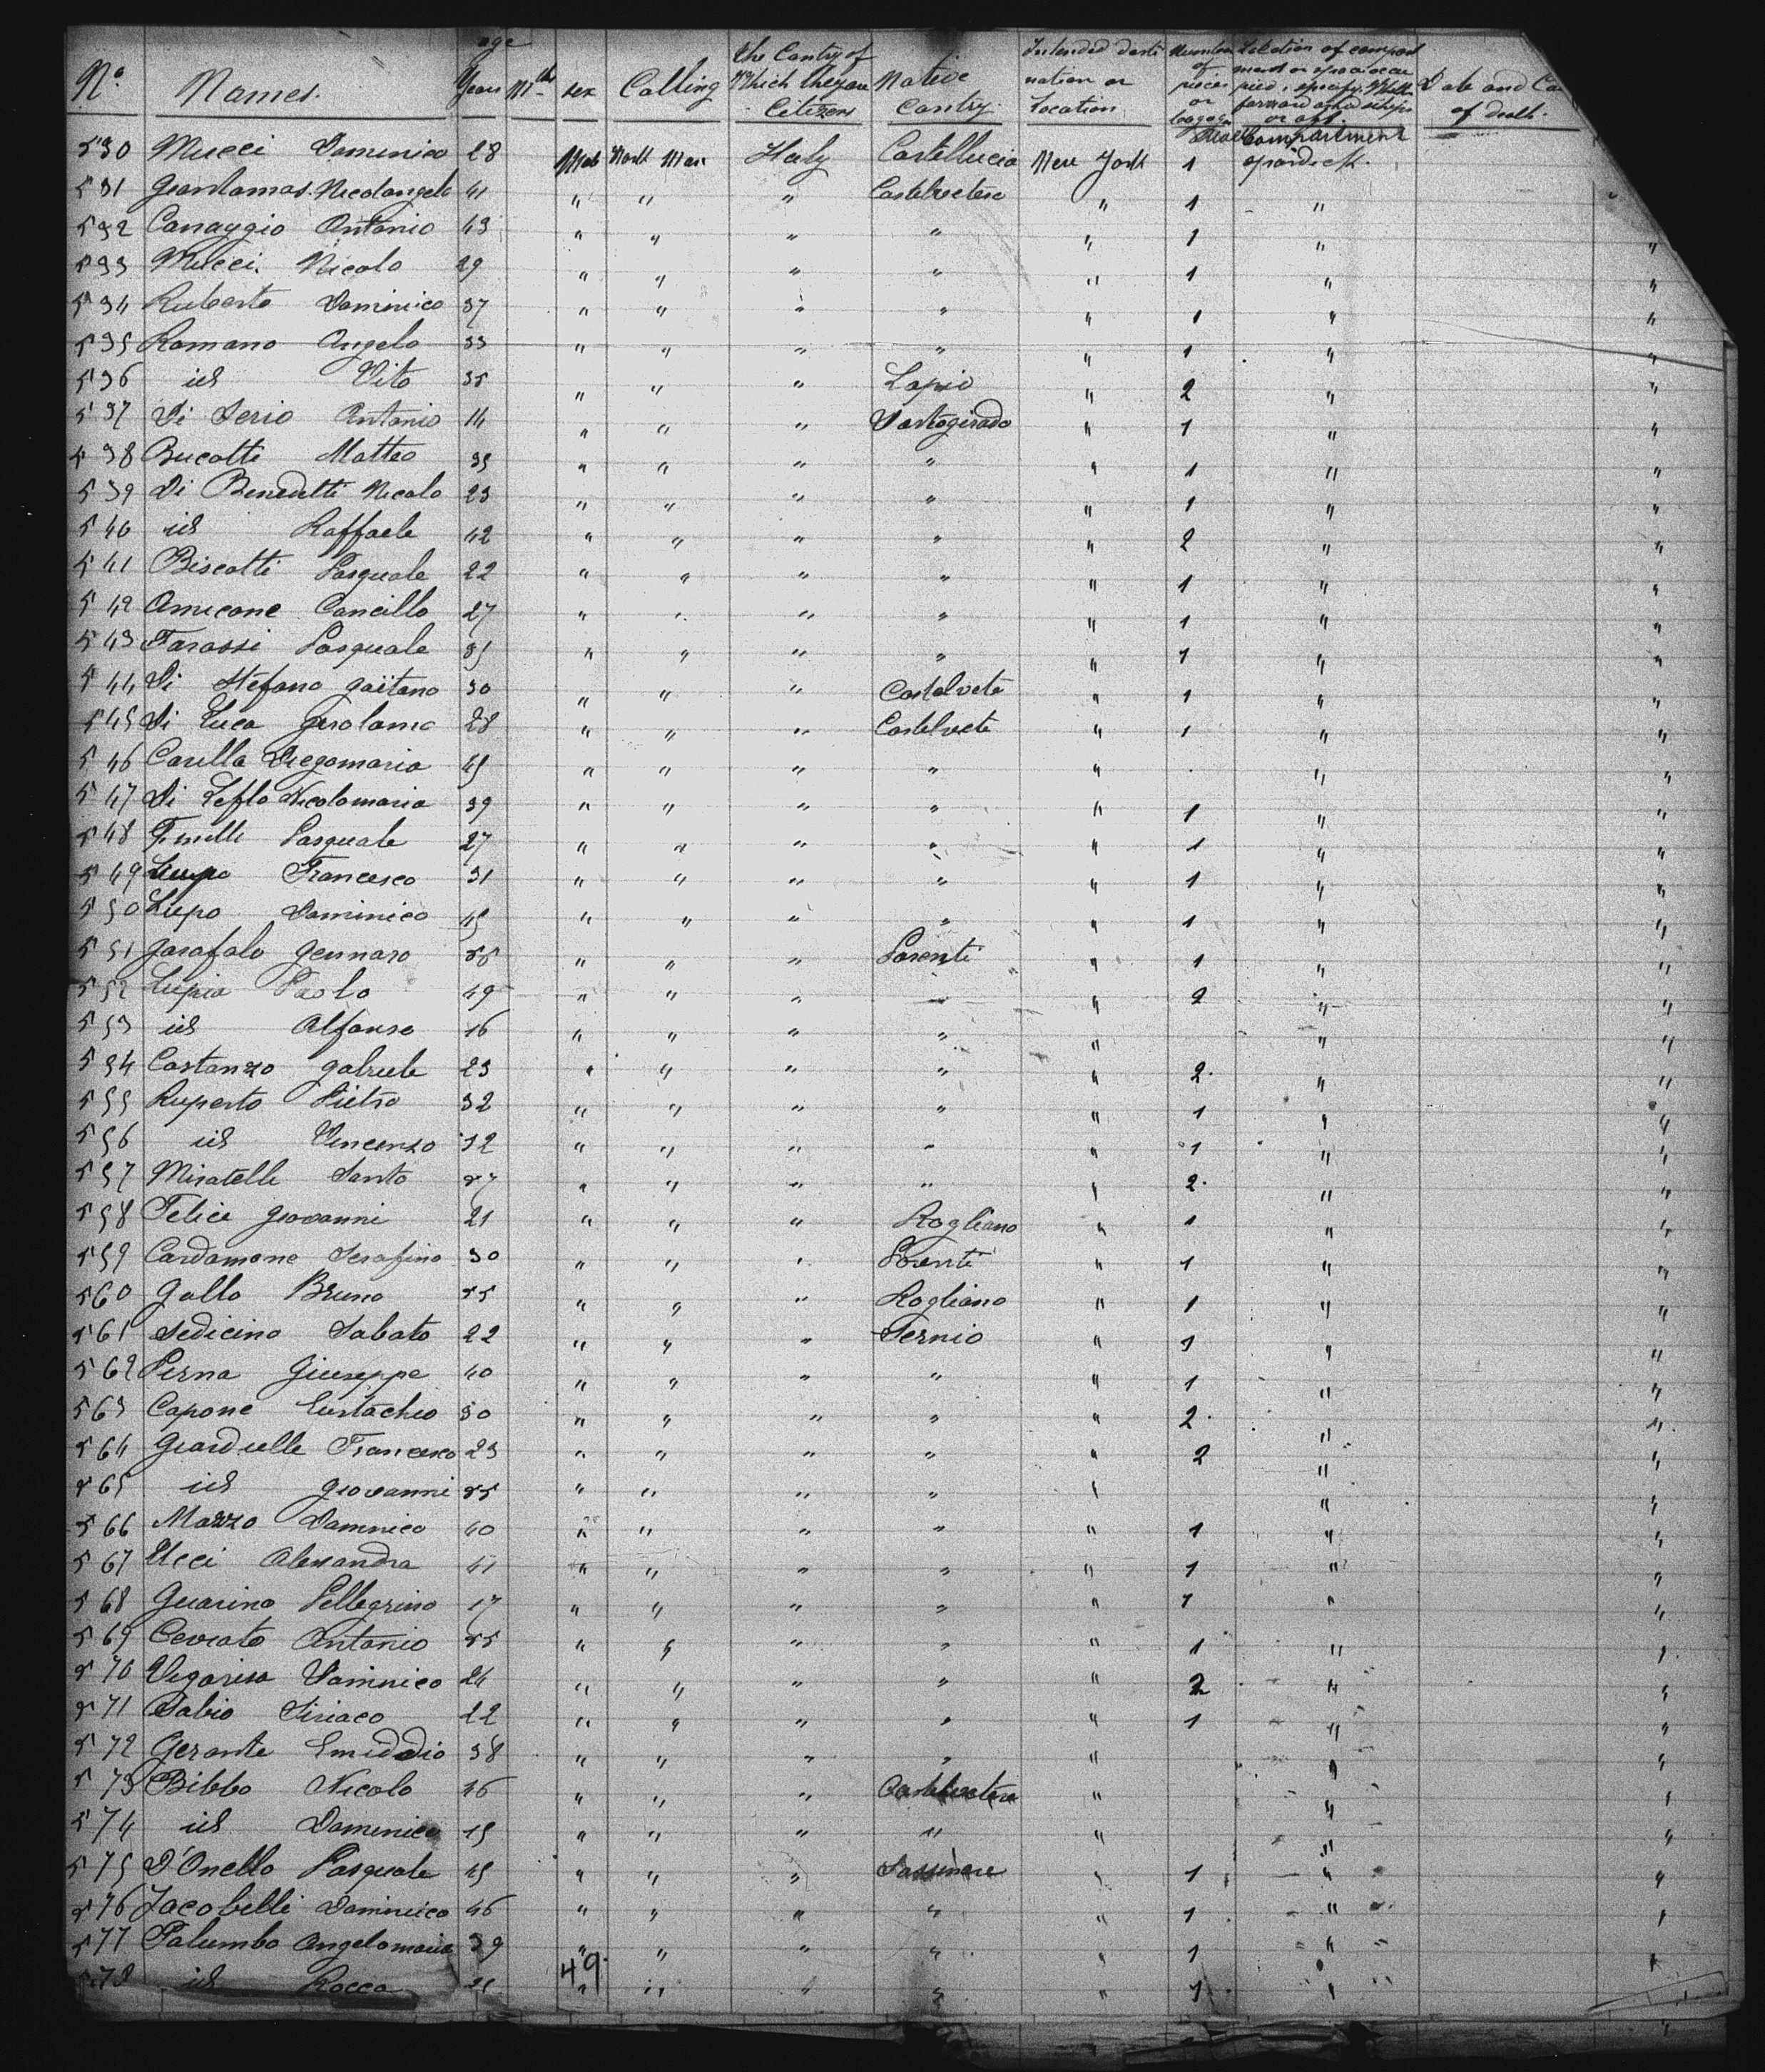 N° Names. age Years Mth sex Calling the Contry of Which they are Citizens Native Contry Intended desti nation or Location Number of pieces or bagage Location of compart ment or space occu pied, specify. Whether forward amidships or aft. Date and Ca of death.
530 Mucci Domenico 28 Male Work Man Italy Castelluccio New York 1 Compartment
531 Nicolangelo 41 " " " Castelvetere " 1 "
532 Canaggio Antonio 43 " " " " " 1 " "
533 Mucci Nicolo 29 " " " " " 1 " "
534 Ruberto Dominico 37 " " " " " 1 " "
535 Romano Angelo 33 " " " " " 1 " "
536 id Vito 35 " " " Lapio " 2 " "
537 Di Serio Antonio 14 " " " " 1 " "
538 Bucotti Matteo 35 " " " " " 1 " "
539 Di Benedetti Nicolo 23 " " " " " 1 " "
540 id Raffaele 42 " " " " " 2 " "
541 Biscotti Pasquale 22 " " " " " 1 " "
542 Amicone Cancillo 27 " " " " " 1 " "
543 Tarassi Pasquale " " " " " 1 " "
544 Di Stefano Gaëtano 30 " " " Castelvete " 1 " "
545 Di Luca Gerolamo 28 " " " Castelvete " 1 " "
546 Carilla Diegomaria 45 " " " " " " "
547 Di Nicolomaria 39 " " " " " 1 " "
548 Pasquale 27 " " " " " 1 " "
549 Lupo Francesco 31 " " " " " 1 " "
550 Lupo Dominico 45 " " " " " 1 " "
551 Garafalo Gennaro 25 " " " Parenti " 1 " "
552 Lupia Paolo 49 " " " " " 2 " "
553 id Alfonso 16 " " " " " " "
554 Costanzo Gabriele 23 " " " " " 2 " "
555 Ruperto Pietro 32 " " " " " 1 " "
556 id Vincenzo 32 " " " " " 1 " "
557 Miratelli Santo 27 " " " " " 2 " "
558 Felice Giovanni 21 " " " Rogliano " 1 " "
559 Cardamone Serafino 30 " " " " 1 " "
560 Gallo Bruno 25 " " " Rogliano " 1 " "
561 Sedicino Sabato 22 " " " Sernio " 1 " "
562 Perna Giuseppe 40 " " " " " 1 " "
563 Capone Eustachio 30 " " " " " 2 " "
564 Giardielle Francesco 23 " " " " " 2 " "
565 id Giovanni 25 " " " " " " "
566 Mazzo Dominico 40 " " " " " 1 " "
567 Ucci Alexandra 41 " " " " " 1 " "
568 Guarino Pellegrino 17 " " " " " 1 " "
569 Antonio 25 " " " " " 1 " "
570 Dominico 24 " " " " " 2 " "
571 Siriaco 22 " " " " " 1 " "
572 Gerante Emiddio 38 " " " " " " "
573 Bibbo Nicolo 16 " " " Castelvetere " " "
574 id Domenico 15 " " " " " " "
575 D'Onello Pasquale 45 " " " " 1 " "
576 Jacobelli Dominico 46 " " " " " 1 " "
577 Palumbo Angelomaria 39 " " " " " 1 " "
578 id Rocco " " " " " 1 " "
49